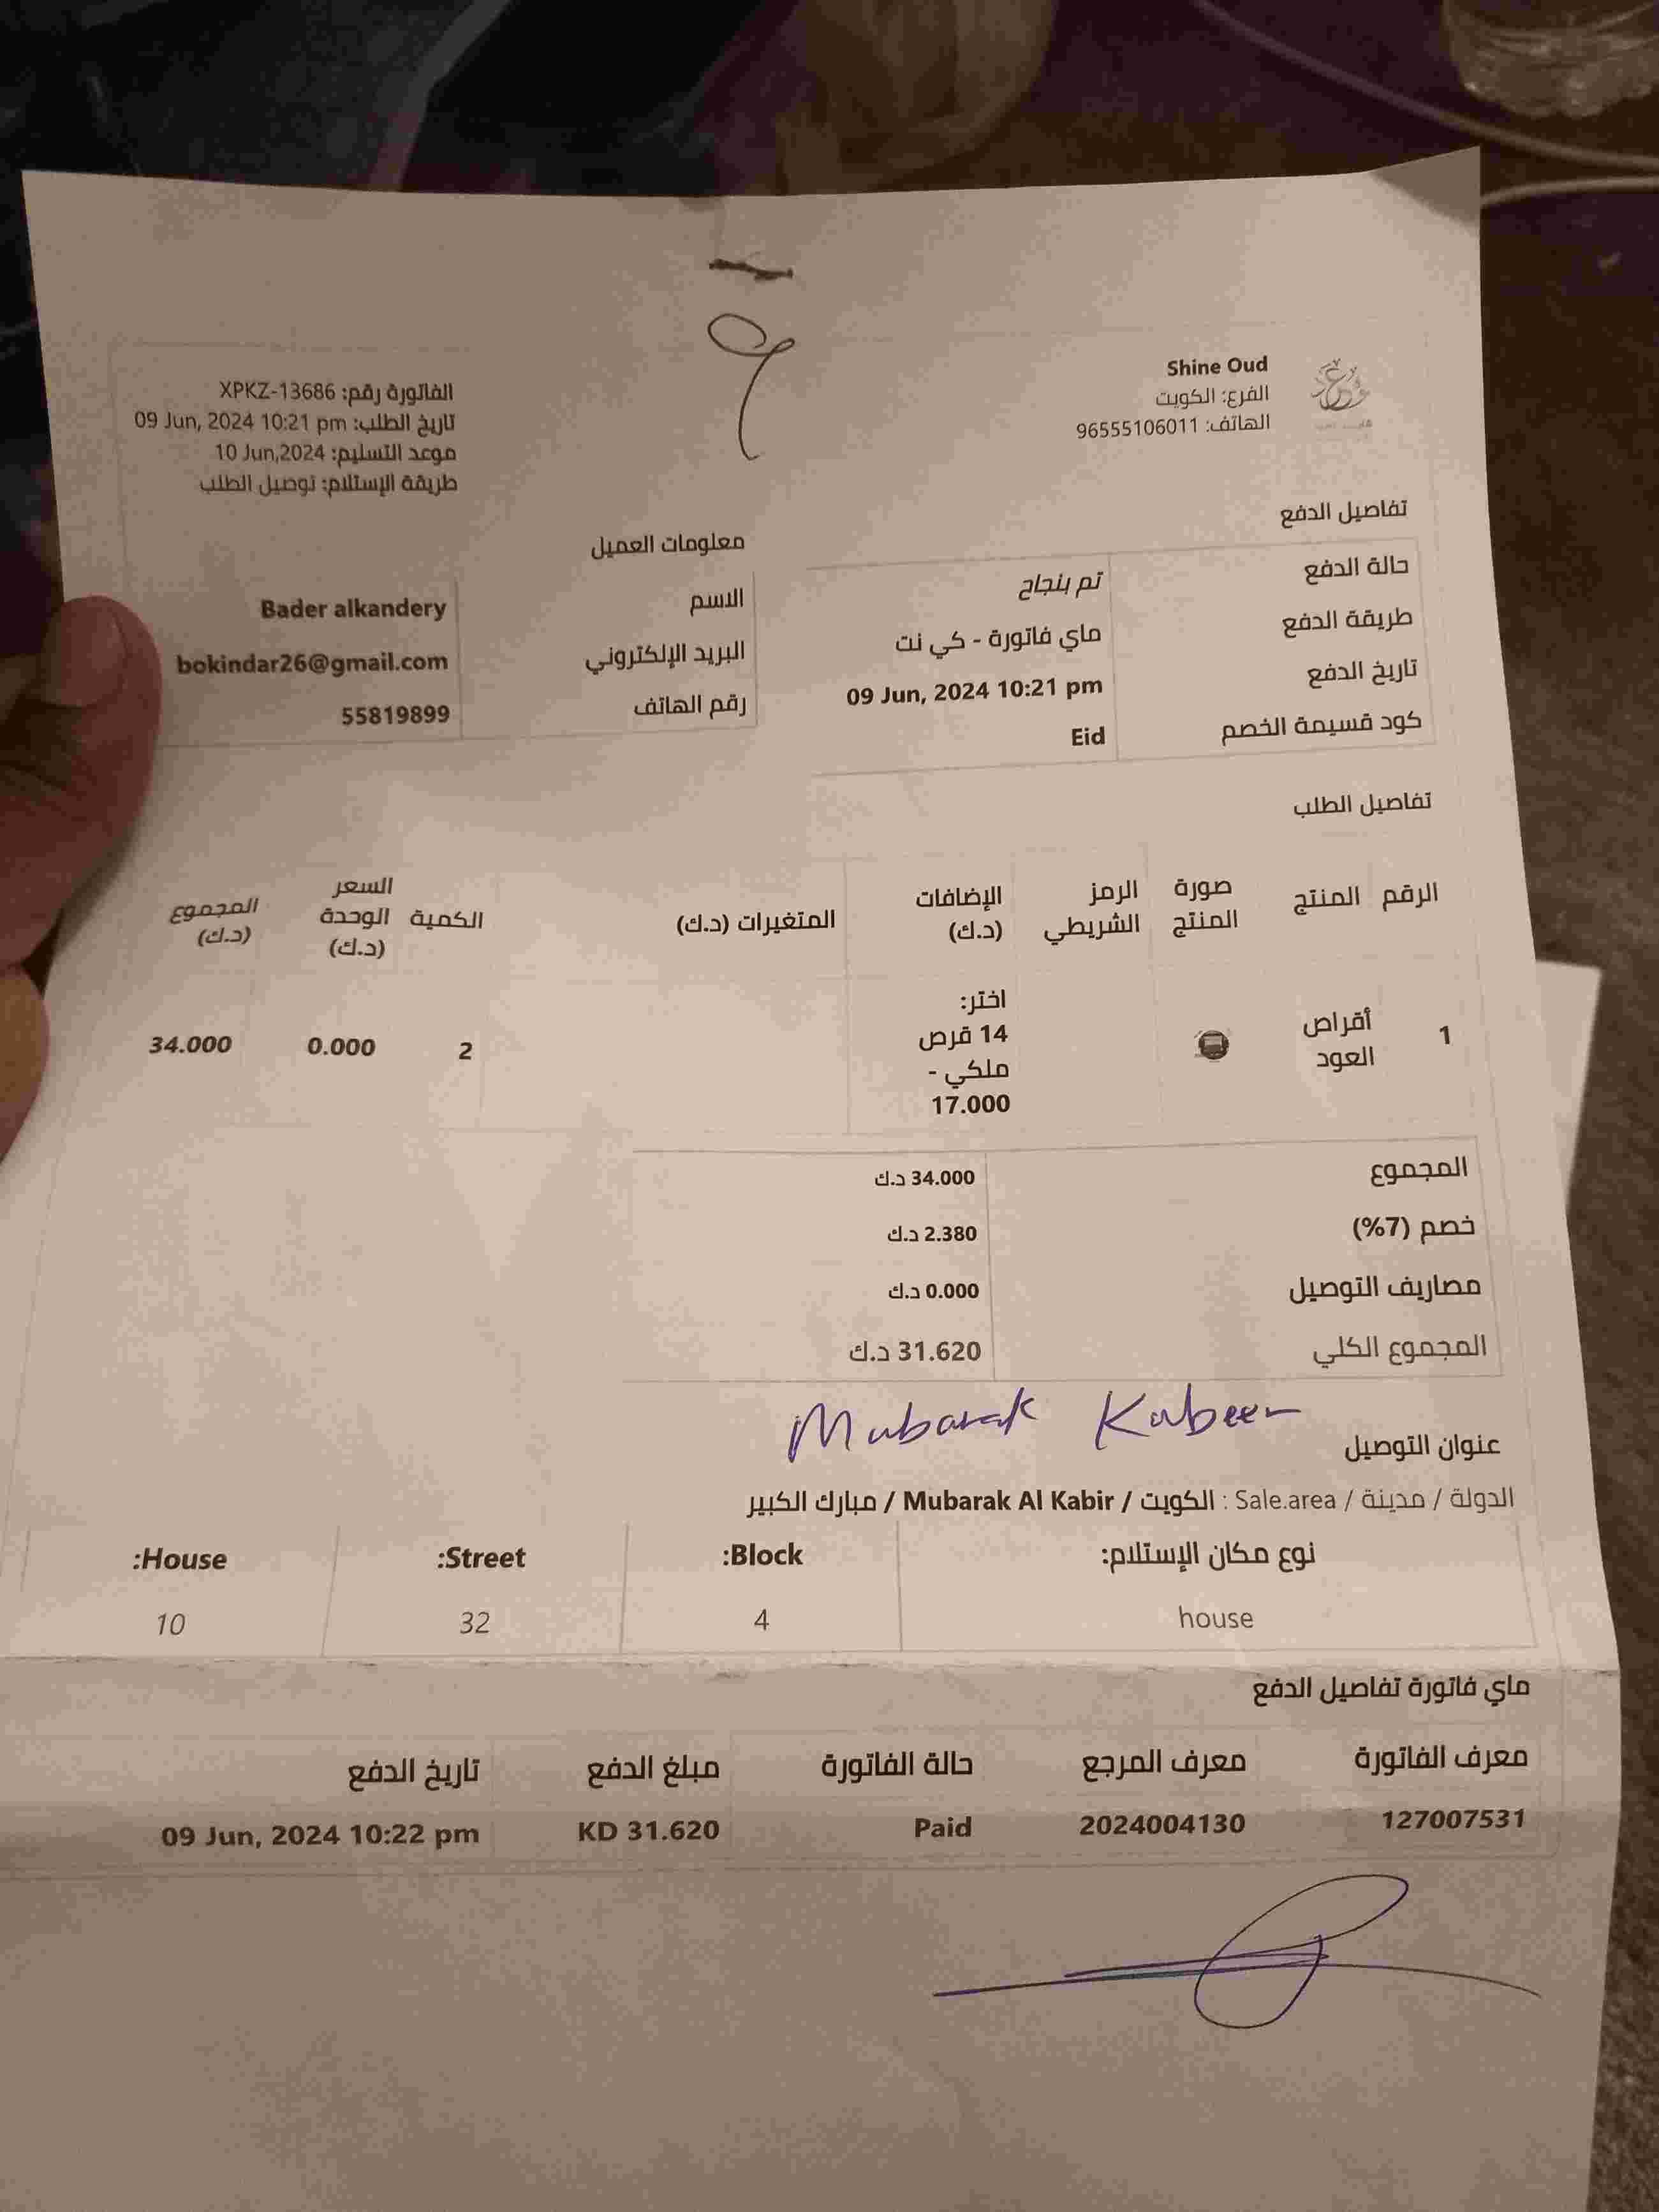 Shine Oud
الفرع: الكويت
الهاتف: 96555106011
الفاتورة رقم: XPKZ-13686
تاريخ الطلب: 09 Jun, 2024 10:21 pm
موعد التسليم: 10 Jun,2024
طريقة الإستلام: توصيل الطلب
9
تفاصيل الدفع
حالة الدفع تم بنجاح
طريقة الدفع ماي فاتورة - كي نت
تاريخ الدفع 09 Jun, 2024 10:21 pm
كود قسيمة الخصم Eid
معلومات العميل
الاسم Bader alkandery
البريد الإلكتروني bokindar26@gmail.com
رقم الهاتف 55819899
تفاصيل الطلب
الرقم المنتج صورة المنتج الرمز الشريطي الإضافات (د.ك) المتغيرات (د.ك) الكمية السعر الوحدة (د.ك) المجموع (د.ك)
1 أقراص العود اختر: 14 قرص ملكي - 17.000 2 0.000 34.000
المجموع 34.000 د.ك
خصم (7%) 2.380 د.ك
مصاريف التوصيل 0.000 د.ك
المجموع الكلي 31.620 د.ك
Mubarak Kabeer
عنوان التوصيل
الدولة / مدينة / Sale.area : الكويت / Mubarak Al Kabir / مبارك الكبير
نوع مكان الإستلام: Block: Street: House:
house 4 32 10
ماي فاتورة تفاصيل الدفع
معرف الفاتورة معرف المرجع حالة الفاتورة مبلغ الدفع تاريخ الدفع
127007531 2024004130 Paid KD 31.620 09 Jun, 2024 10:22 pm